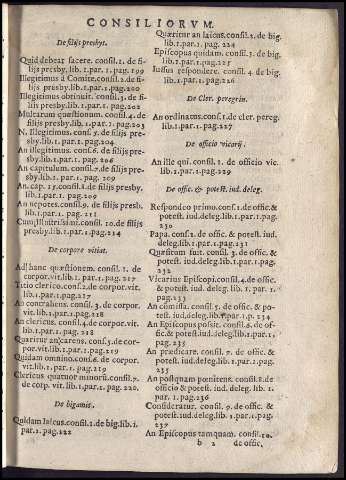 CONSILIORVM.
De filijs presbyt.
Quid debeat facere. consil.1. de filijs presby. lib.1.par.1.pag.199
Illegitimus à Comite.consil.2.de filijs presby. lib.1.par.1.pag.200
Illegitimus obtinuit. consil.3. de filijs presby. lib.1.par.1.pag.202
Multarum quæstionum. consil.4.de filijs presby. lib.1.par.1.pag.203
N. Illegitimus. con. 5. de filijs presby. lib.1.par.1.pag. 204
An illegitimus. con.6. de filijs presby. lib.1.par.1.pag. 206
An capitulum. consil.7.de filijs presby. lib.1.par.1.pag. 209
An cap. 15.consil.8.de filijs presby. lib.1.par.1.pag. 209
An nepotes.consil.9. de filijs presby. lib.1. par.1. pag. 211
consil.10. de filijs presby. lib.1.par.1.pag.214
De corpore vitiat.
Ad hanc quæstionem. consil.1. de corpor.vit.lib.1.par.1.pag.217
Titio clerico.cons.2.de corpor.vit. lib.1.par.1.pag.217
An contrahens. consil.3. de corpor. vit. lib.1.par.1.pag.218
An clericus. consil.4.de corpor.vit. lib.1.par.1.pag.218
Quæritur an carens. consil.5.de corpor.vit.lib.1.par.1.pag.219
Quidam omnino.cons.6. de corpor. vit.lib.1.par.1.pag.219
Clericus quatuor minoru.consil.7. de corp. vit. lib.1.par.1.pag. 220
De bigamis.
Quidam laicus.consil.1.de big.lib.1. par.1.pag.222
Quæritur an laicus.consil.2. de big. lib.1.par.1.pag.224
Episcopus quidam.consil.3. de big. lib.1.par.1.pag.225
Iussus respondere. consil.4. de big. lib.1.par.1.pag.226
De Cler. peregrin.
An ordinatus.cons.1.de cler. pereg. lib.1.par.1.pag.227
De officio vicarij.
An ille qui. consil.1. de officio vic. lib.1.par.1.pag.229
De offic. & potest. iud. deleg.
Respondeo primo.cons.1.de offic.& potest. iud.deleg.lib.1.par.1.pag. 230
Papa. cons.2. de offic. & potest. iud.deleg.lib.1.par.1.pag.231
Quæsitum fuit. consil.3. de offic.& potest.iud.deleg.lib.1.par.1.pag. 232
Vicarius Episcopi.consil.4.de offic. & potest. iud. deleg. lib.1. par.1. pag.233
An commissa. consil.5. de offic. & potest.iud.deleg.lib.1.par.1.p.234
An Episcopus possit. consil.6. de offic.& potest.iud.deleg.lib.1.par.1. pag.235
An prædicare. consil.7. de offic. & potest.iud.deleg.lib.1.par.1.pag. 235
An postquam pœnitens. consil.8.de officio & potest. iud. deleg. lib.1. par.1.pag.236
Consideratur. consil.9. de offic. & potest.iud.deleg.lib.1.par.1.pag. 237
An Episcopus tamquam. consil.10.
b 2 de offic.